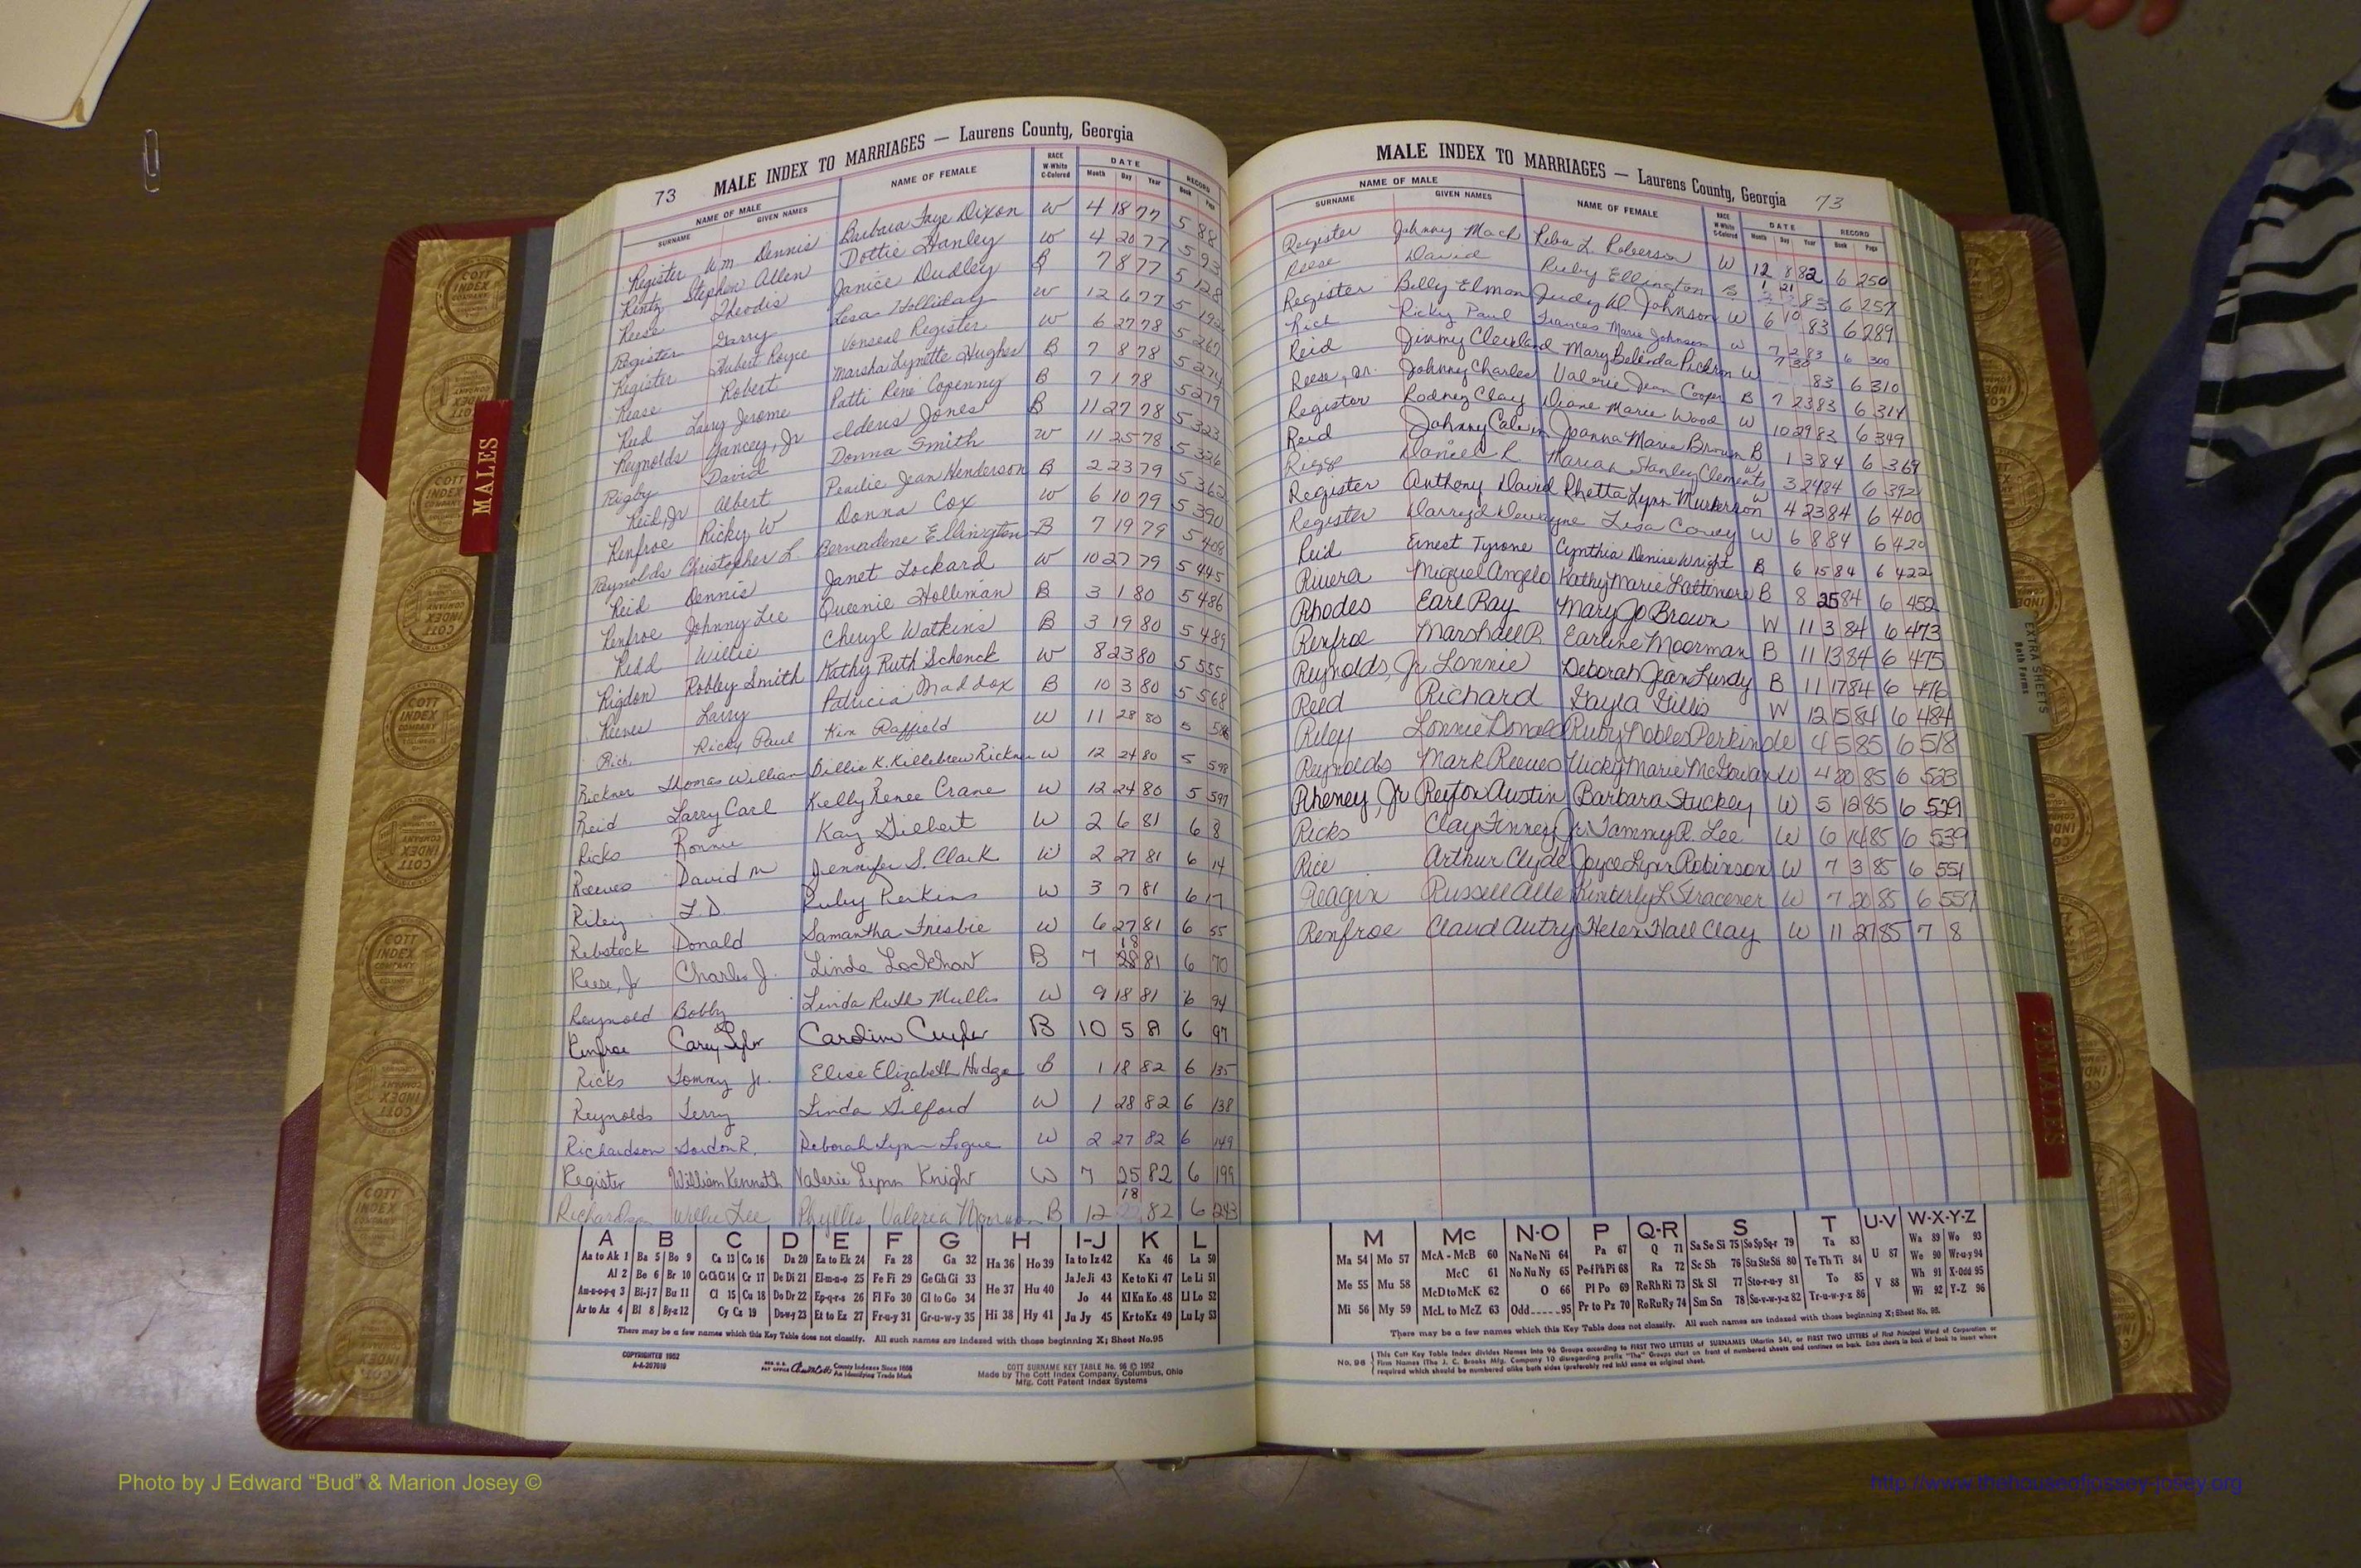 73 MALE INDEX TO MARRIAGES — Laurens County, Georgia
NAME OF MALE NAME OF FEMALE RACE DATE RECORD
SURNAME GIVEN NAMES W-White C-Colored Month Day Year Book Page
Register Wm Dennis Barbara Faye Dixon W 4 18 77 5 88
Rentz Stephen Allen Dottie Hanley W 4 20 77 5 93
Reese Theodis Janice Dudley B 7 8 77 5 128
Register Garry Lesa Holliday W 12 6 77 5
Register Hubert Royce Vonseal Register W 6 27 78 5 267
Rease Robert Marsha Lynette Hughes B 7 8 78 5 274
Reid Larry Jerome Patti Rene Copenny B 7 1 78 5 279
Reynolds Yancey, Jr Elders Jones B 11 27 78 5 323
Rigby David Donna Smith W 11 25 78 5 326
Reid, Jr Albert Pearlie Jean Henderson B 2 23 79 5 362
Renfroe Ricky W Donna Cox W 6 10 79 5 390
Reynolds Christopher L. Bernadene Ellington B 7 19 79 5 408
Reid Dennis Janet Lockard W 10 27 79 5 445
Renfroe Johnny Lee Queenie Holliman B 3 1 80 5 486
Redd Willie Cheryl Watkins B 3 19 80 5 489
Rigdon Robley Smith Kathy Ruth Schenck W 8 23 80 5 555
Reeves Larry Patricia Maddox B 10 3 80 5 568
Rich Ricky Paul Kim Raffield W 11 28 80 5 586
Rickner Thomas William Billie K. Killebrew Rickner W 12 24 80 5 598
Reid Larry Carl Kelly Renee Crane W 12 24 80 5 597
Ricks Ronnie Kay Gilbert W 2 6 81 6 8
Reeves David M Jennifer S. Clark W 2 27 81 6 14
Riley L.D. Ruby Perkins W 3 7 81 6 17
Rebstock Donald Samantha Frisbie W 6 27 81 6 55
Reese, Jr Charles J. Linda Lockhart B 7 18 28 81 6 70
Reynold Bobby Linda Ruth Mullis W 9 18 81 6 94
Renfroe Carey Tyler Caroline Cuyler B 10 5 81 6 97
Ricks Tommy Jr. Elise Elizabeth Hodge B 1 18 82 6 135
Reynolds Terry Linda Gilford W 1 28 82 6 138
Richardson Gordon R. Deborah Lynn Logue W 2 27 82 6 149
Register William Kenneth Valerie Lynn Knight W 7 25 82 6 199
Richardson Willie Lee Phyllis Valeria Moorman B 12 18 82 6 243
A B C D E F G H I-J K L
Aa to Ak 1 Ba 5 Bo 9 Ca 13 Co 16 Da 20 Ea to Ek 24 Fa 28 Ga 32 Ha 36 Ho 39 Ia to Iz 42 Ka 46 La 50
Al 2 Be 6 Br 10 Ce Ch Ci 14 Cr 17 De Di 21 El-m-n-o 25 Fe Fi 29 Ge Gh Gi 33 Je Ji 43 Ke to Ki 47 Le Li 51
An-o-p-q 3 Bi-j 7 Bu 11 Cl 15 Cu 18 Do Dr 22 Ep-q-r-s 26 Fl Fo 30 Gl to Go 34 He 37 Hu 40 Jo 44 Kl Kn Ko 48 Ll Lo 52
Ar to Az 4 Bl 8 By-z 12 Cy Cz 19 Du-w-y 23 Et to Ez 27 Fr-u-y 31 Gr-u-w-y 35 Hi 38 Hy 41 Ju Jy 45 Kr to Kz 49 Lu Ly 53
There may be a few names which this Key Table does not classify. All such names are indexed with those beginning X; Sheet No.95
COPYRIGHTED 1952
County Indexes Since 1888
An Identifying Trade Mark
COTT SURNAME KEY TABLE No. 96 © 1952
Made by The Cott Index Company, Columbus, Ohio
Mfg. Cott Patent Index Systems
MALE INDEX TO MARRIAGES — Laurens County, Georgia 73
NAME OF MALE NAME OF FEMALE RACE DATE RECORD
SURNAME GIVEN NAMES W-White C-Colored Month Day Year Book Page
Register Johnny Mack Reba L. Roberson W 12 8 82 6 250
Reese David Ruby Ellington B 1 21 83 6 257
Register Billy Elmon Judy W. Johnson W 6 10 83 6 289
Rich Ricky Paul Frances Marie Johnson W 7 2 83 6 300
Reid Jimmy Cleveland Mary Belinda Pickron W 7 30 83 6 310
Reese, Sr. Johnny Charles Valerie Jean Cooper B 7 23 83 6 314
Register Rodney Clay Diane Marie Wood W 10 29 83 6 349
Reid Johnny Calvin Joanna Marie Brown B 1 3 84 6 369
Riggs Daniel R. Mariah Stanley Clements W 3 24 84 6 392
Register Anthony David Rhetta Lynn Murkerson W 4 23 84 6 400
Register Darryd Dewayne Lisa Coney W 6 8 84 6 420
Reid Ernest Tyrone Cynthia Denise Wright B 6 15 84 6 422
Rivera Miguel Angelo Kathy Marie Lattimore B 8 25 84 6 452
Rhodes Earl Ray Mary Jo Brown W 11 3 84 6 473
Renfroe Marshall R. Earline Moorman B 11 13 84 6 475
Reynolds, Jr Lonnie Deborah Jean Lundy B 11 17 84 6 476
Reed Richard Gayla Gillis W 12 15 84 6 484
Riley Lonnie Donald Ruby Nobles Perkins W 4 5 85 6 518
Reynolds Mark Reeves Vicky Marie McGowan W 4 20 85 6 523
Rheney, Jr Reifon Austin Barbara Stuckey W 5 12 85 6 529
Ricks Clay Finney Jr. Tammy R. Lee W 6 14 85 6 539
Rice Arthur Clyde Joyce Lynn Robinson W 7 3 85 6 551
Reagin Russell Alle Kimberly L. Stracener W 7 20 85 6 557
Renfroe Claud Autry Helen Hall Clay W 11 27 85 7 8
M Mc N-O P Q-R S T U-V W-X-Y-Z
Ma 54 Mo 57 McA - McB 60 Na Ne Ni 64 Pa 67 Q 71 Sa Se Si 75 So Sp Sq-r 79 Ta 83 Wa 89 Wo 93
Me 55 Mu 58 McC 61 No Nu Ny 65 Pe-f Ph Pi 68 Ra 72 Sc Sh 76 Sta Ste Sti 80 Te Th Ti 84 U 87 We 90 Wr-u-y 94
McD to McK 62 O 66 Pl Po 69 Re Rh Ri 73 Sk Sl 77 Sto-r-u-y 81 To 85 V 88 Wh 91 X-Odd 95
Mi 56 My 59 McL to McZ 63 Odd 95 Pr to Pz 70 Ro Ru Ry 74 Sm Sn 78 Su-v-w-y-z 82 Tr-u-w-y-z 86 Wi 92 Y-Z 96
There may be a few names which this Key Table does not classify. All such names are indexed with those beginning X; Sheet No. 95.
No. 96 This Cott Key Table Index divides Names into 96 Groups according to FIRST TWO LETTERS of SURNAMES (Martin 54), or FIRST TWO LETTERS of First Principal Word of Corporation or
Firm Names (The J. C. Brooks Mfg. Company 10 disregarding prefix "The" Groups start on front of numbered sheets and continue on back. Extra sheets in back of book to insert where
required which should be numbered alike both sides (preferably red ink) same as original sheet.
MALES
FEMALES
EXTRA SHEETS
Both Forms
COTT INDEX COMPANY
Photo by J Edward “Bud” & Marion Josey ©
http://www.thehouseofjossey-josey.org